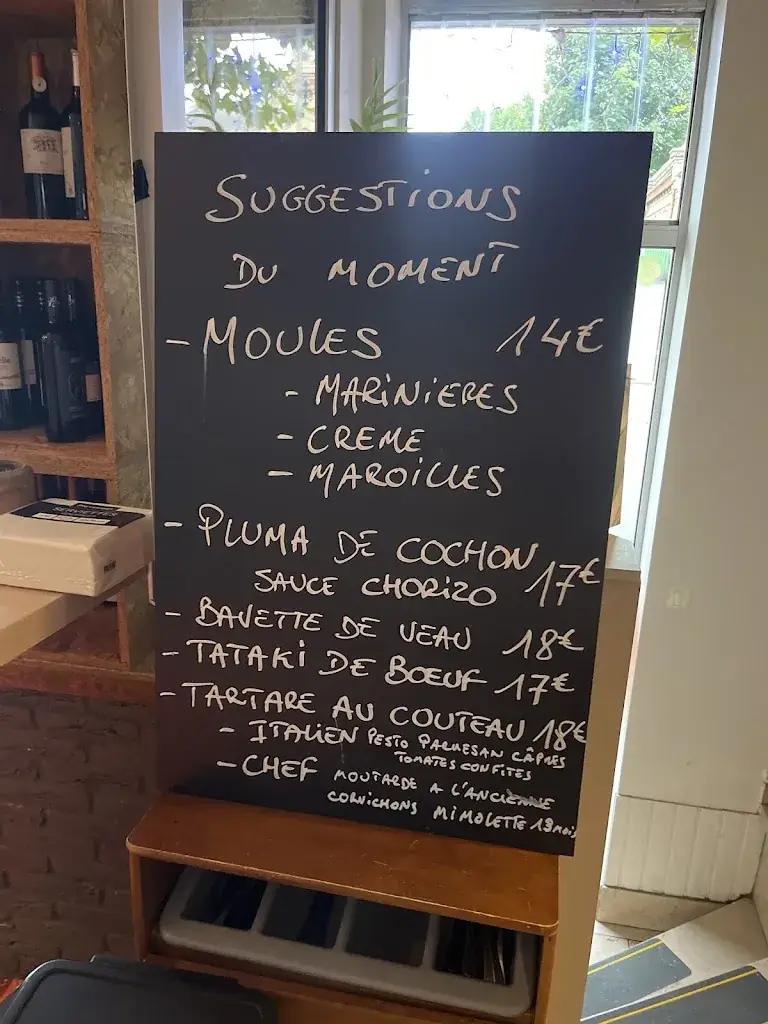 SUGGESTIONS
DU MOMENT
- MOULES 14€
- MARINIERES
- CREME
- MAROILLES
- PLUMA DE COCHON
SAUCE CHORIZO 17€
- BAVETTE DE VEAU 18€
- TATAKI DE BOEUF 17€
- TARTARE AU COUTEAU 18€
- ITALIEN PESTO PARMESAN CÂPRES
TOMATES CONFITES
- CHEF MOUTARDE A L'ANCIENNE
CORNICHONS MIMOLETTE 18 MOIS
SERVIETTES